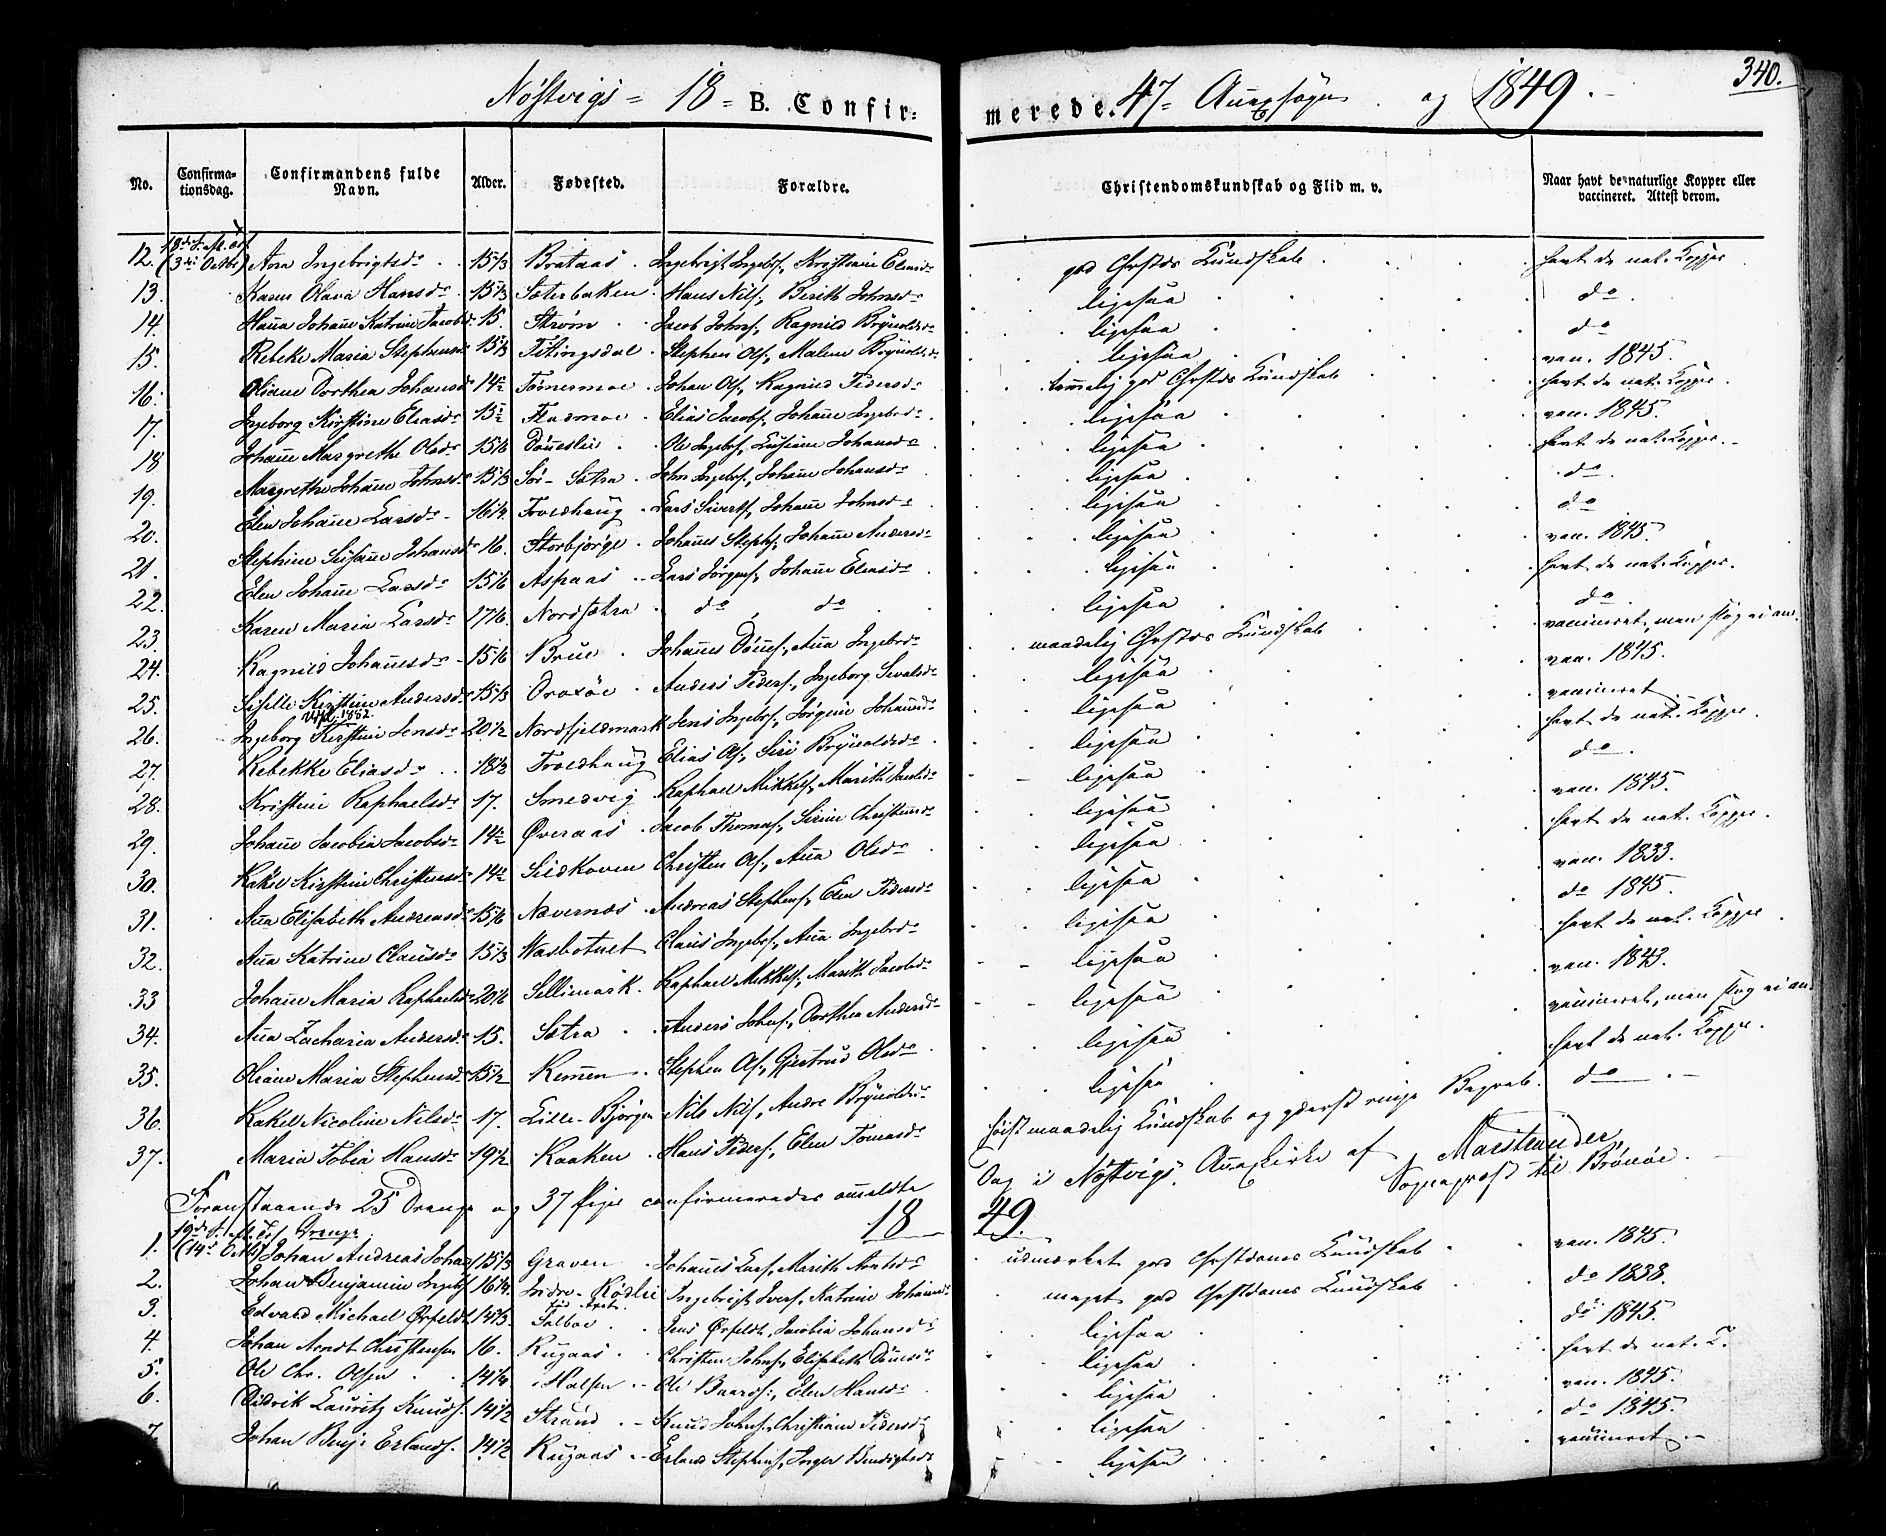 340.
Nøstvigs = 18 = B. Confir= merede. 47 = Annexsogn . og 1849 .
No. Confirma-tionsdag. Confirmandens fulde Navn. Alder. Fødested. Forældre. Christendomskundskab og Flid m. v. Naar havt de naturlige Kopper eller vaccineret. Attest derom.
12. (3die Octbr) Ana Ingebrigtsdr 15 1/3 Brataas Ingebrigt Ingebrs., Kristiane Eliasdr god Chrstds Kundskab havt de nat. Kopper
13. Karen Olava Hansdr 15 1/3 Sæterbakken Hans Nils., Berith Johnsdr ligesaa do
14. Hana Johane Katrine Jacobsdr 15. Strøm Jacob Johns., Ragnild Brynoldsdr ligesaa do
15. Rebeke Maria Stephensdr 15 1/3 Titingsdal Stephen Ols., Malene Brynoldsdr ligesaa vac. 1845.
16. Oliane Dorthea Johansdr 14 Tømermoe Johan Ols., Ragnild Pedersdr temmelig god Chrstds Kundskab havt de nat. Kopper
17. Ingeborg Kirstine Eliasdr 15 Fladmoe Elias Jacobs., Johane Ingebrdr ligesaa vac. 1845.
18 Johane Margrethe Olsdr 15 1/6 Dønneslie Ole Ingebrs., Lusiane Johansdr ligesaa havt de nat. Kopper
19. Margrethe Johane Johnsdr 15 1/3 Sør-Sætra John Ingebrs., Johane Johansdr ligesaa do
20. Elen Johane Larsdr 16 1/4 Troldhaug Lars Siverts., Johane Johnsdr ligesaa do
21. Stephine Susane Johansdr 16. Storbjørge Johanes Stephs., Johane Andersdr ligesaa vac. 1845.
22. Elen Johane Larsdr 15 1/6 Aspaas Lars Jørgens., Johane Eliasdr ligesaa havt de nat. Kopper
23. Karen Maria Larsdr 17 1/6. Nordsætra do do ligesaa do
24. Ragnild Johanesdr 15 1/6 Brue Johanes Dønes., Ana Ingebrdr maadelig Chrstds Kundskab vaccineret, men slog ei an.
25. Siselle Kirstine Andersdr 15 1/3 Oroxøe Anders Peders., Ingeborg Sivalsdr ligesaa vac. 1845.
26. Ingeborg Kirstine Jensdr 20 1/2 Nordfjeldmark Jens Ingebrs., Jørgine Johansdr ligesaa vaccineret
1852.
27. Rebekke Eliasdr 18 1/2 Troldhaug Elias Ols., Siri Brynoldsdr ligesaa havt de nat. Kopper
28. Kristine Raphaelsdr 17. Smedvig Raphael Mikkels., Marith Jacobsdr ligesaa do
29. Johane Jacobia Jacobsdr 14 Øveraas Jacob Thomas., Sirine Christensdr ligesaa vac. 1845.
30. Rakel Kirstine Christensdr 14 Sildkoven Christen Ols., Ana Olsdr ligesaa havt de nat. Kopper
31. Ana Elisabeth Andreasdr 15 1/6 Nævernæs Andreas Stephens., Elen Pedersdr ligesaa vac. 1833.
32. Ana Katrine Clausdr 15 1/3 Vasbotnet Claus Ingebrs., Ana Ingebrdr ligesaa do 1845.
33 Johane Maria Raphaelsdr 20 1/6 Sellimark Raphael Mikkels., Marith Jacobsdr ligesaa havt de nat. Kopper
34. Ana Zacharia Andersdr 15. Sætra Anders Johns., Dorthea Andersdr ligesaa vac. 1843.
35. Oliane Maria Stephensdr 15 1/2 Remmen Stephen Ols., Gjertrud Olsdr ligesaa vaccineret, men slog ei an
36. Rakel Nicoline Nilsdr 17. Lille-Bjørgen Nils Nils., Andre Brynoldsdr ligesaa havt de nat. Kopper
37. Maria Tobia Hansdr 19 1/2 Kaaken Hans Peders., Elen Tomasdr høist maadelig Kundskab og yderst ringe Begreb. do
Foranstaaende 25 Drenge og 37 Piger confirmeredes anmeldte Dag i Nøstvigs Anexkirke af Marstrander,
Sogneprest til Brønøe.
1849.
19de S. eft. Tr. Drenge
1. (14de Octbr) Johan Andreas Johans. 15 1/3 Graven Johanes Lars., Marith Arntsdr udmærket god Chrstdoms Kundskab vac. 1845.
2. Johan Benjamin Ingebrs. 16 1/4 Indre-Rødlie Ingebrigt Ivers., Katrine Johansdr meget god Chrstdoms Kundskab do 1838.
3. Edvard Michael Ørfeldt 14 1/3. Talboe Jens Ørfeldt, Jacobia Johansdr ligesaa do 1845.
4. Johan Arndt Christensen 16. Rugaas Christen Johns., Elisabeth Dønesdr ligesaa havt de nat. K.
5. Ole Chr. Olsen 14 1/4 Holsen Ole Baards., Elen Hansdr ligesaa vac. 1845.
6. Didrik Lauritz Knuds. 14 1/2 Strand Knud Johns., Christiane Pedersdr ligesaa do 1845.
7. Johan Benj: Erlands. 14 1/2 Rugaas Erland Stephens., Inger Bendigtsdr ligesaa vaccineret